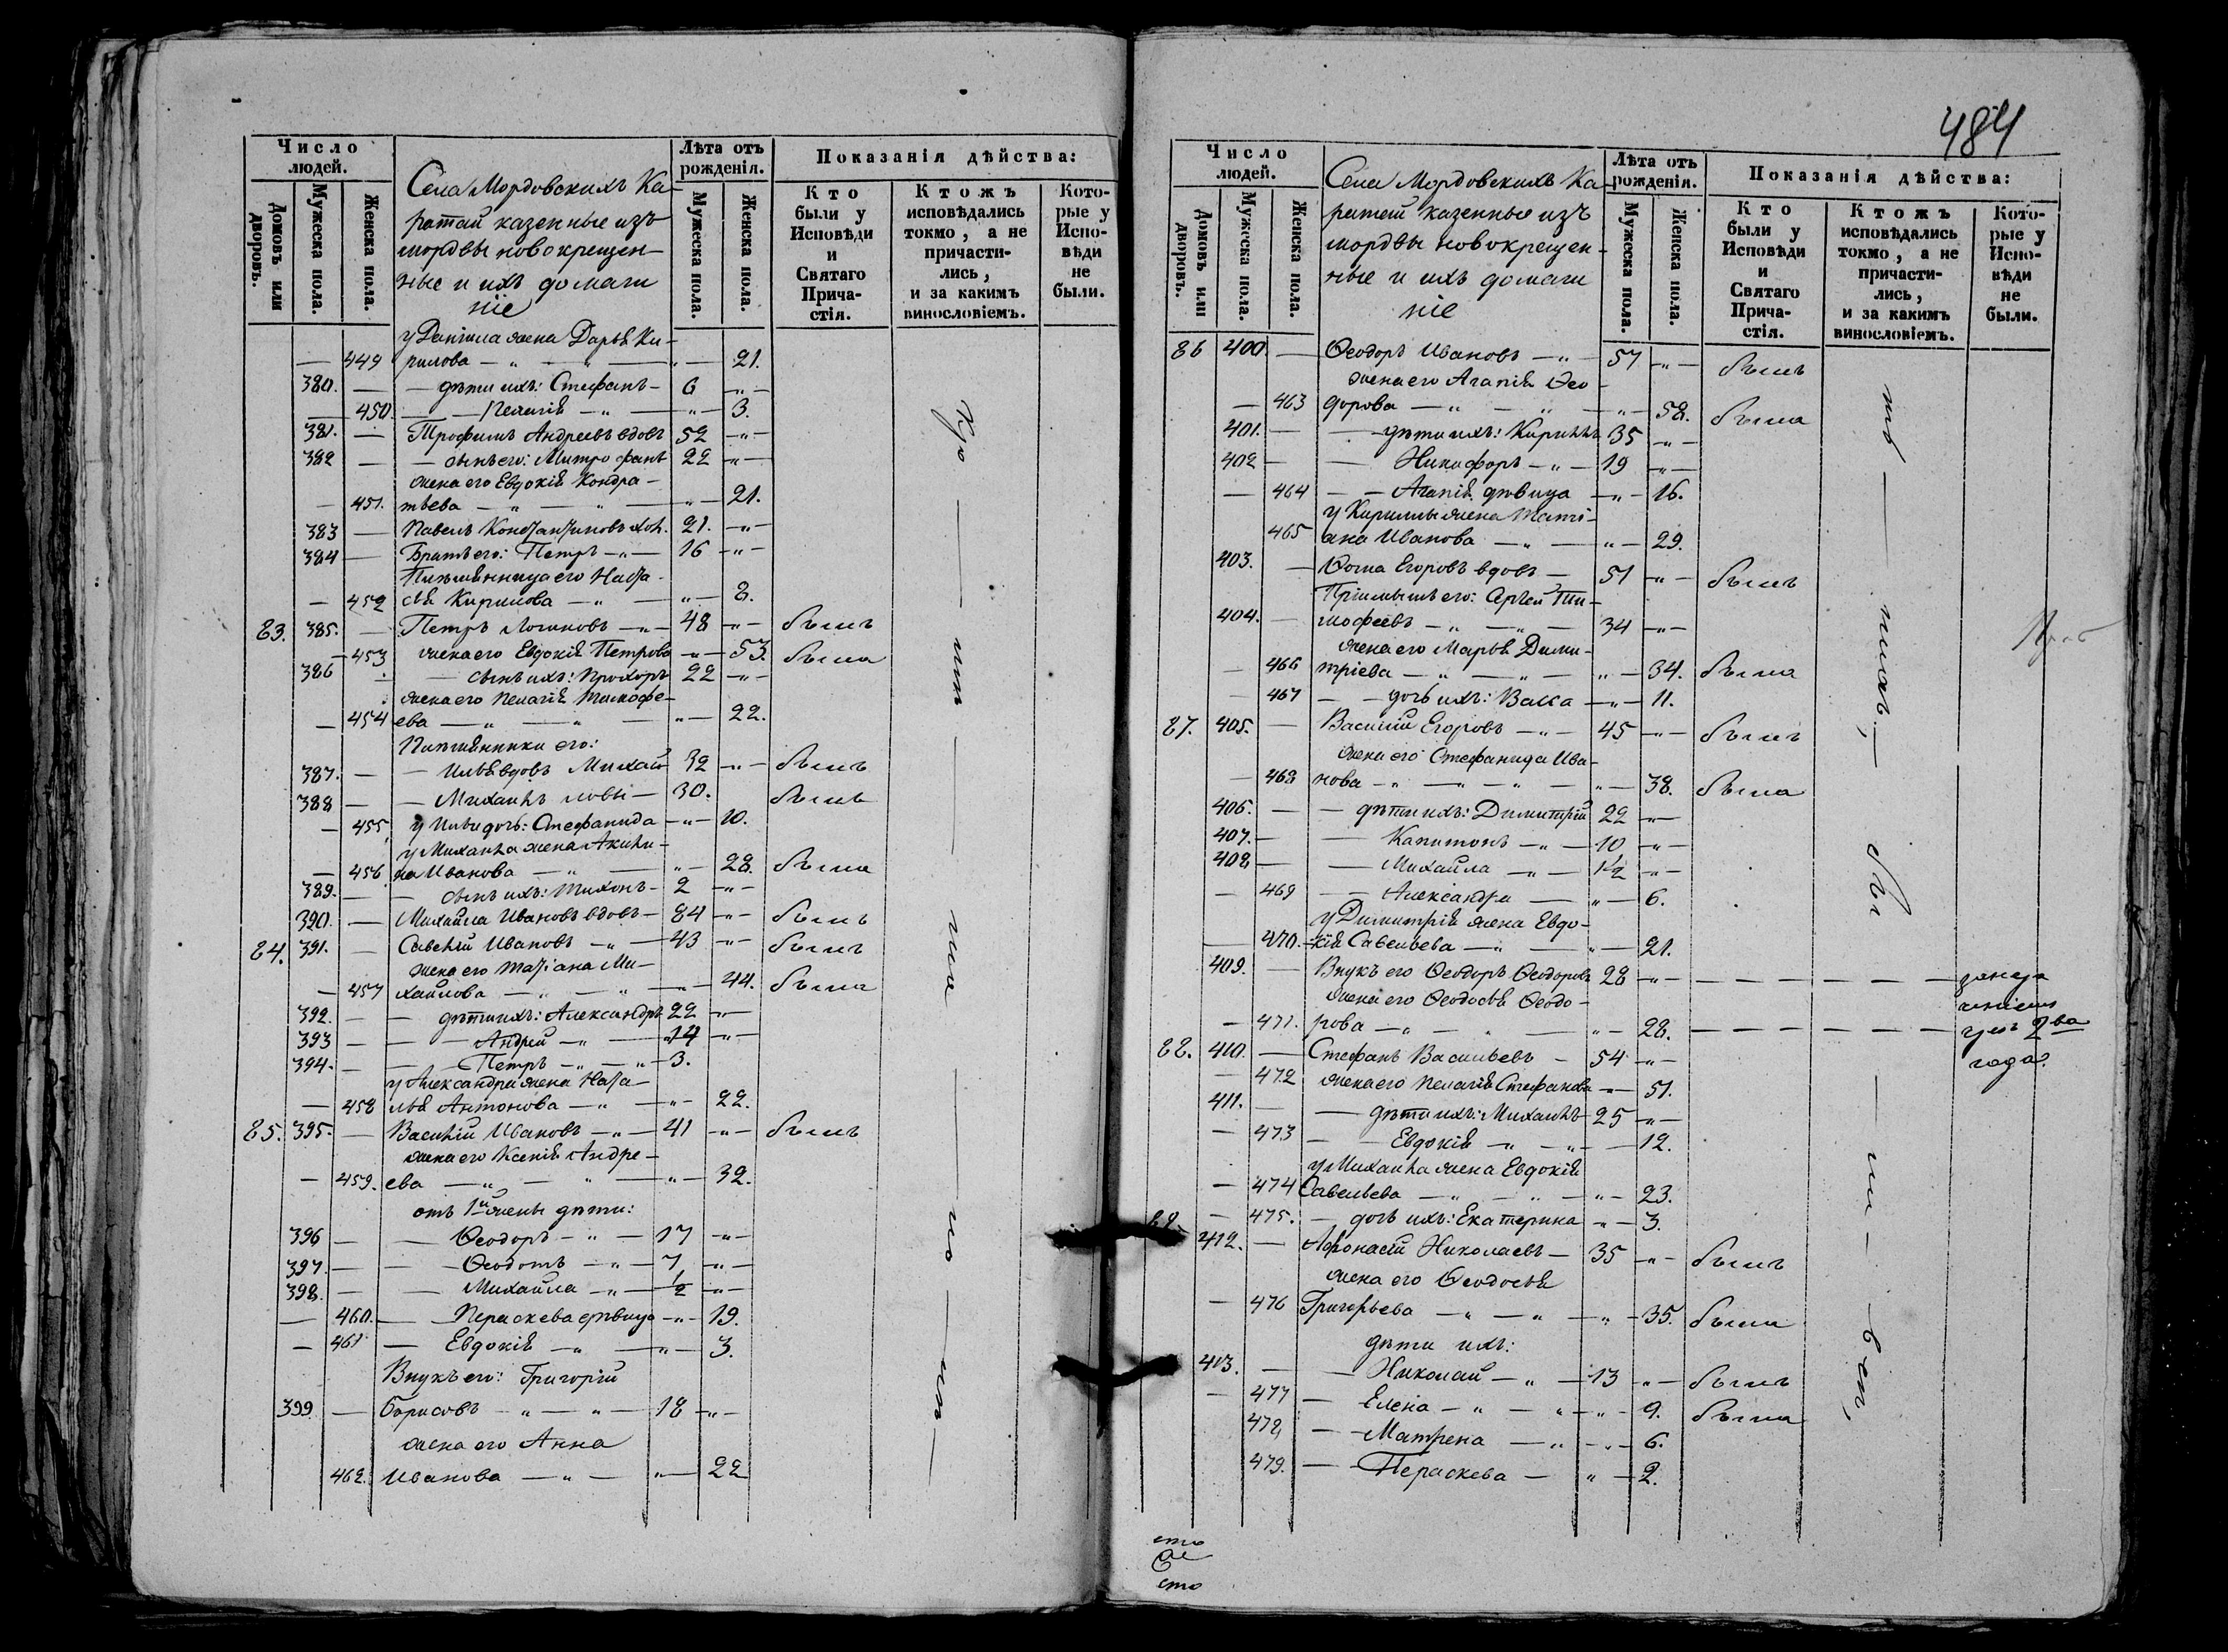 Число людей.
Домовъ или дворовъ.
Мужеска пола.
Женска пола.
Села Мордовскихъ Ка-
ратай казенные изъ
мордвы новокрещен-
ные и ихъ домаш
ніе
Лѣта отъ рожденія.
Мужеска пола.
Женска пола.
Показанія дѣйства:
Кто были у Исповѣди и Святаго Прича-стія.
Ктожъ исповѣдались токмо, а не причасти-лись, и за какимъ винословіемъ.
Кото-рые у Испо-вѣди не были.
у жена Дарья Ки-
449 рилова — " — " — 21.
380. — дѣти ихъ: Стефанъ — 6 — " —
— 450. — Пелагія — " — " — 3.
381. — Трофимъ Андреевъ вдовъ 52 — " —
382 — сынъ его: Митрофанъ 22 — " —
жена его Евдокія Кондра-
— 451. тьева — " — " — 21.
383 — Павелъ Константиновъ хол. 21. — " —
384 — Братъ его: Петръ — " — 16 — " —
Племянница его Наста-
— 452 сья Кирилова — " — " — 8.
83. 385. — Петръ Логиновъ — " — 48 — " — былъ
— 453 жена его Евдокія Петрова — " — 53. была
386 — сынъ ихъ: Прохоръ 22 — " —
жена его Пелагія Тимофе-
— 454 ева — " — " — 22.
Племянники его:
387. — Илья вдовъ Михай 32 — " — былъ
388 — Михаилъ ловы — 30. былъ
— 455 у Ильи дочь: Стефанида — " — 10.
у Михаила жена Акили-
— 456 на Иванова — " — " — 28. была
389. — сынъ ихъ: Тихонъ — 2 — " —
390. — Михайла Ивановъ вдовъ — 84 — " — былъ
84. 391. — Савелій Ивановъ — " — 43 — " — былъ
жена его Татіана Ми-
— 457 хайлова — " — " — 44. была
392. — дѣти ихъ: Александръ 22 — " —
393 — Андрей — " — 14 — " —
394. — Петръ — " — " — 3.
у Александра жена Ната-
— 458 лья Антонова — " — " — 22.
85. 395. — Василій Ивановъ — " — 41 — " — былъ
жена его Ксенія Андре-
— 459. ева — " — " — " — 32.
отъ 1й жены дѣти:
396 — Ѳеодоръ — " — 17 — " —
397. — Ѳеодотъ — " — 7 — " —
398. — Михайла — " — 1/2 — " —
— 460. — Параскева дѣвица — " — 19.
— 461 — Евдокія — " — " — 3.
Внукъ его: Григорій
399 — Борисовъ — " — " — 18 — " —
жена его Анна
462. Иванова — " — " — 22
484
Число людей.
Домовъ или дворовъ.
Мужеска пола.
Женска пола.
Села Мордовскихъ Ка-
ратай казенные изъ
мордвы новокрещен-
ные и ихъ домаш
ніе
Лѣта отъ рожденія.
Мужеска пола.
Женска пола.
Показанія дѣйства:
Кто были у Исповѣди и Святаго Прича-стія.
Ктожъ исповѣдались токмо, а не причасти-лись, и за какимъ винословіемъ.
Кото-рые у Испо-вѣди не были.
86 400 — Ѳеодоръ Ивановъ — " — 57 — " — былъ
жена его Агапія Ѳео-
— 463 дорова — " — " — " — 58. была
401. — дѣти ихъ: Кирилъ 35 — " —
402 — Никифоръ — " — 19 — " —
— 464 — Агапія дѣвица — " — 16.
у Кирилы жена Тати-
465 ана Иванова — " — " — 29.
403. — Ѳома Егоровъ вдовъ — 51 — " — былъ
Пріемышъ его: Сергѣй Ти-
404. — мофеевъ — " — " — 34 — " —
жена его Марья Дими-
— 466 тріева — " — " — " — 34. была
— 467 — дочь ихъ: Васса — " — 11.
87. 405. — Василій Егоровъ — " — 45 — " — былъ
жена его Стефанида Ива-
— 468 нова — " — " — " — 38. была
406. — дѣти ихъ: Димитрій 22 — " —
407. — Капитонъ — " — 10 — " —
408 — Михайла — " — 1/2 — " —
— 469 — Александра — " — 6.
у Димитрія жена Евдо-
— 470. кія Савельева — " — " — 21.
409. — Внукъ его Ѳеодоръ Ѳеодоровъ 28 — " —
жена его Ѳеодосья Ѳеодо-
— 471. рова — " — " — " — 28. 2ва
года.
88. 410. — Стефанъ Васильевъ — 54 — " —
— 472 жена его Пелагія Стефанова — " — 51.
411. — дѣти ихъ: Михаилъ 25 — " —
— 473 — Евдокія — " — " — 12.
у Михаила жена Евдокія
— 474 Савельева — " — " — " — 23.
— 475. — дочь ихъ: Екатерина — " — 3.
89. 412. — Афонасій Николаевъ — 35 — " — былъ
жена его Ѳеодосья
— 476 Григорьева — " — " — " — 35. была
дѣти ихъ:
413. — Николай — " — 13 — " — былъ
— 477 — Елена — " — " — " — 9. была
478, — Матрена — " — " — 6.
479. — Параскева — " — 2.